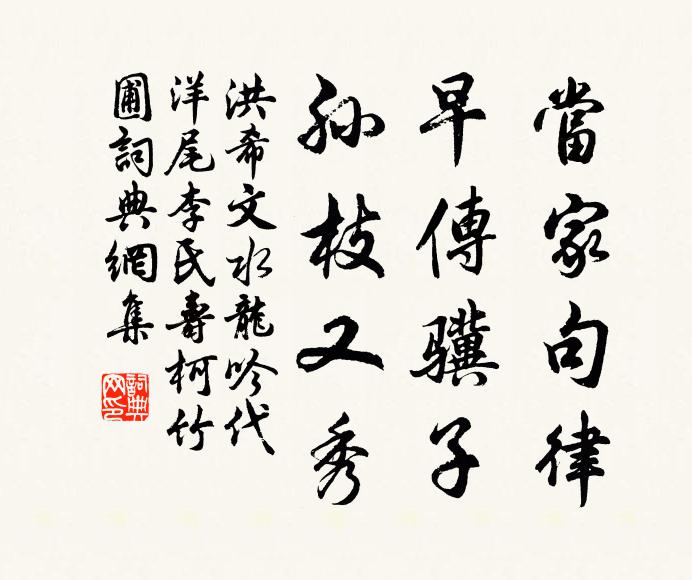 當家句律
早傳驥子
孙枝又秀
洪希文水龍吟代
洋尾李氏壽柯竹
圃詞典網集
詞典
网印